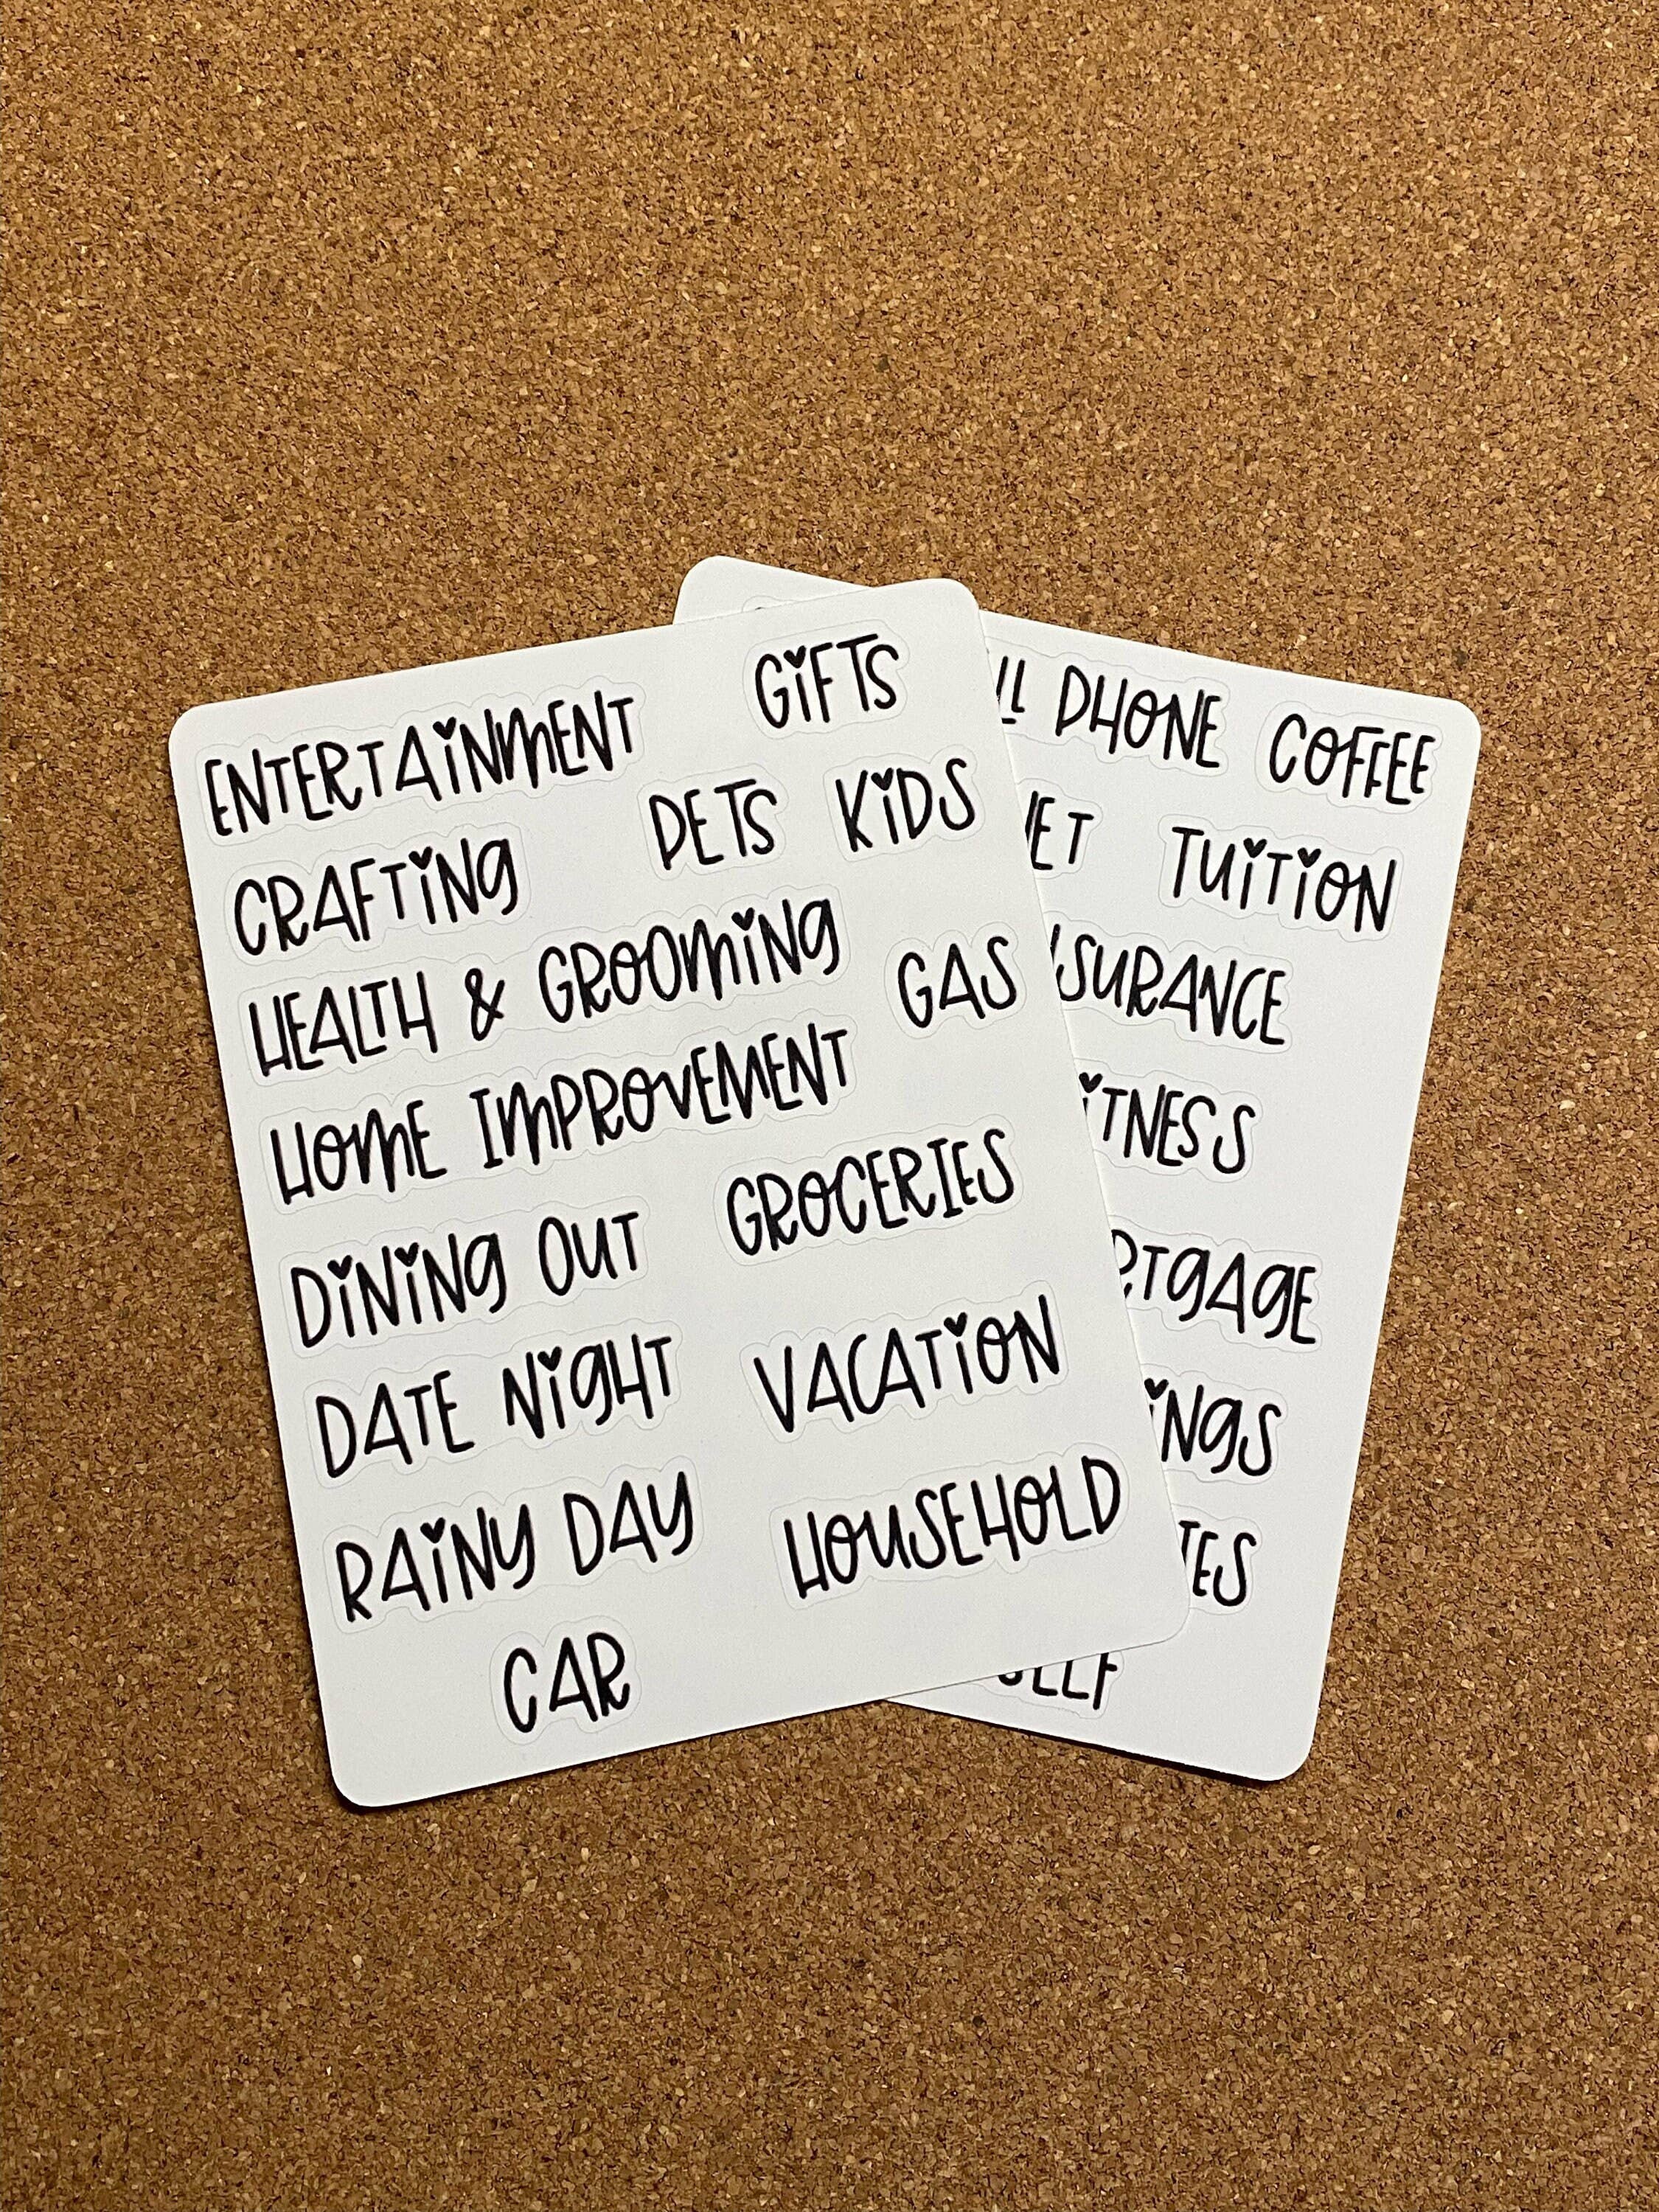 ENTERTAiNMENT GiFTS
CRAFTiNG PETS KiDS
HEALTH & GROOMiNG GAS
HOME IMPROVEMENT
DiNiNG OUT GROCERIES
DATE NiGHT VACATiON
RAiNY DAY HOUSEHOLD
CAR
PHONE COFFEE
TUiTiON